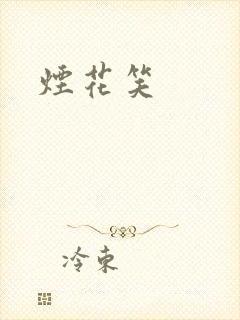 煙花笑
冷束